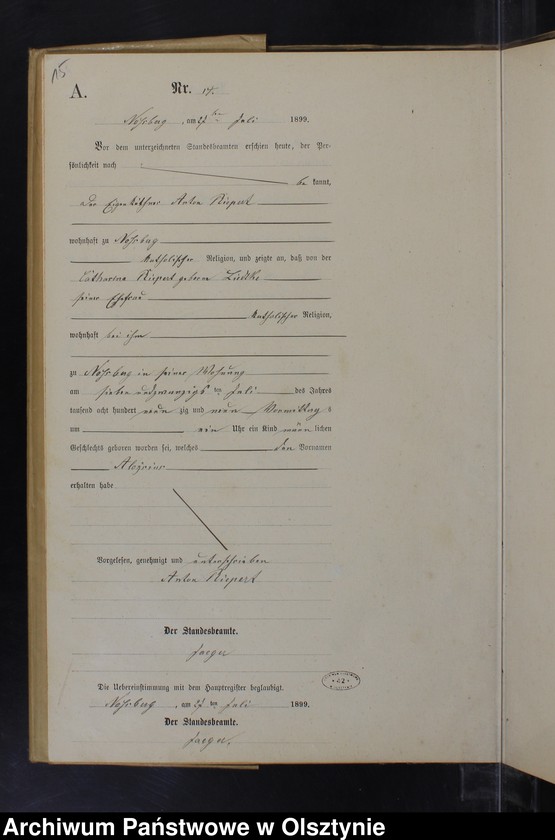 15
A. Nr. 15.
Noßberg, am 27 ten Juli 1899.
Vor dem unterzeichneten Standesbeamten erschien heute, der Per-
sönlichkeit nach
be kannt,
der Eigenkäthner Anton Kiepert
wohnhaft zu Noßberg
katholischer Religion, und zeigte an, daß von der
Catharina Kiepert geborene Lüdtke
seiner Ehefrau
katholischer Religion,
wohnhaft bei ihm
zu Noßberg in seiner Wohnung
am sieben und zwanzigs ten Juli des Jahres
tausend acht hundert neun zig und neun Vormittag s
um ein Uhr ein Kind männ lichen
Geschlechts geboren worden sei, welches den Vornamen
Aloysius
erhalten habe
Vorgelesen, genehmigt und unterschrieben
Anton Kiepert
Der Standesbeamte.
Jaeger
Die Uebereinstimmung mit dem Hauptregister beglaubigt.
Noßberg, am 27 ten Juli 1899.
Der Standesbeamte.
Jaeger.
Archiwum Państwowe w Olsztynie